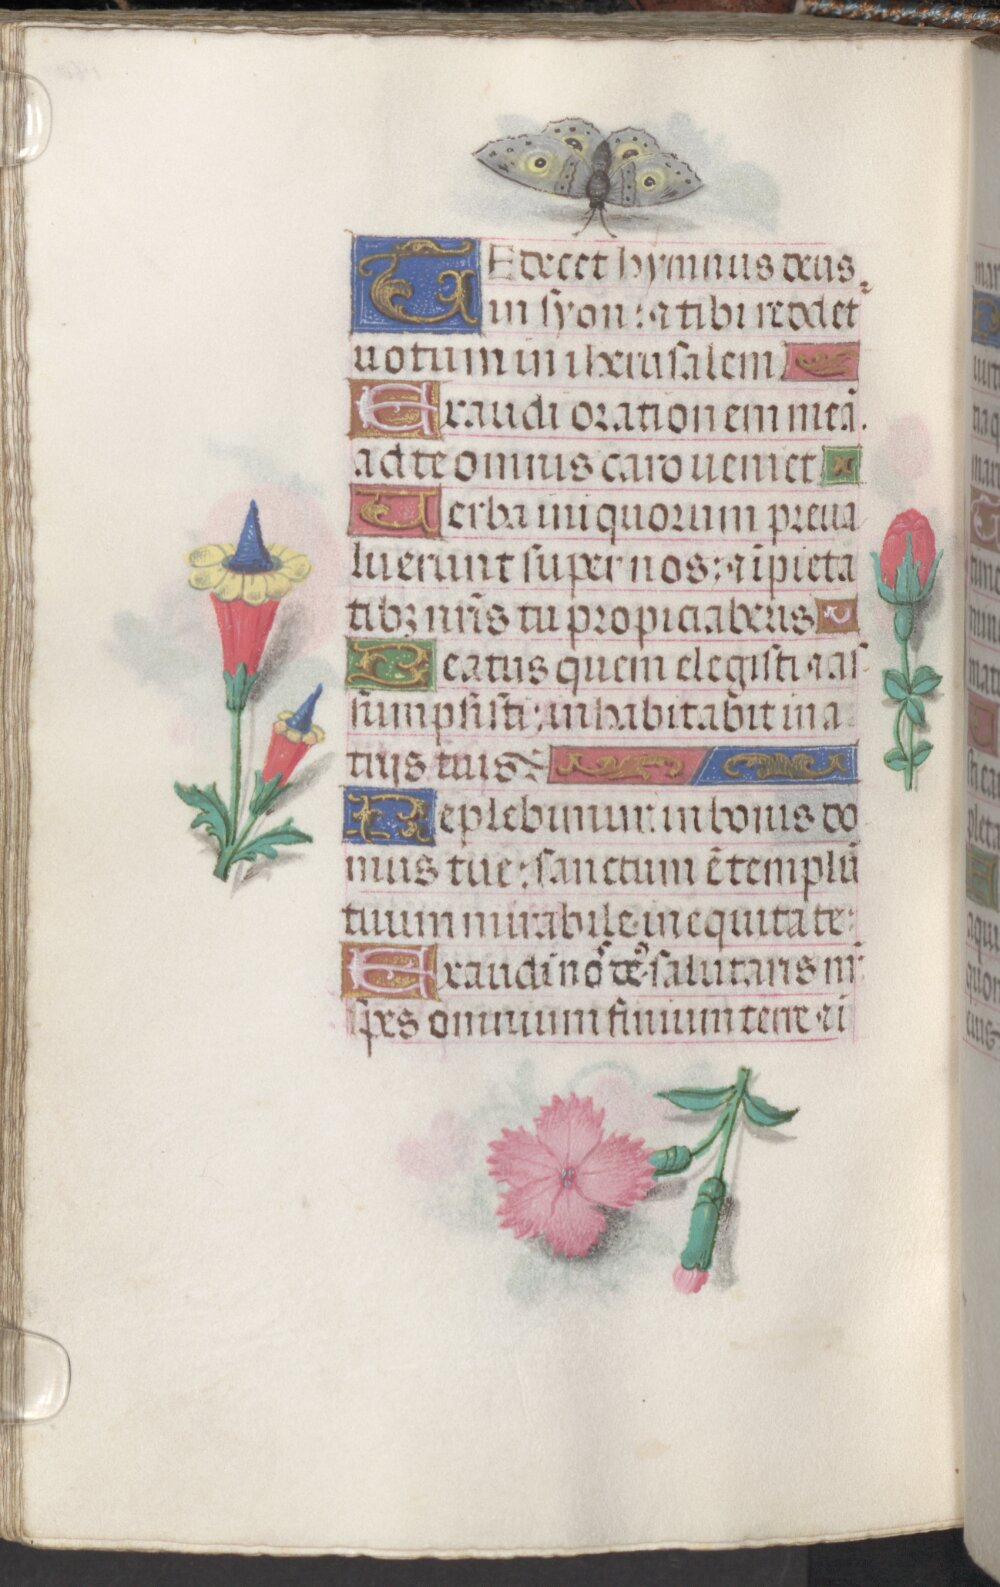 TE decet hymnus deus
in syon: ⁊ tibi reddet
uotum in iherusalem
Exaudi orationem meā.
ad te omnis caro ueniet
Uerba iniquorum preua
luerunt super nos: ⁊ īpieta
tibꝫ nr̄is tu propiciaberis
Beatus quem elegisti ⁊ as
sumpsisti: inhabitabit in a
trijs tuis
Replebimur in bonis do
mus tue: sanctum ē templū
tuum mirabile in equitate:
Exaudi nos deus salutaris nr̄
spes omnium finium terre ⁊ i